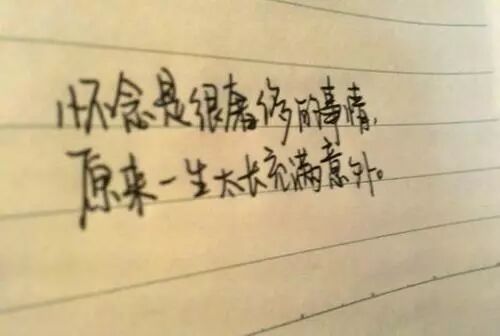 怀念是很奢侈的事情,
原来一生太长充满意外。